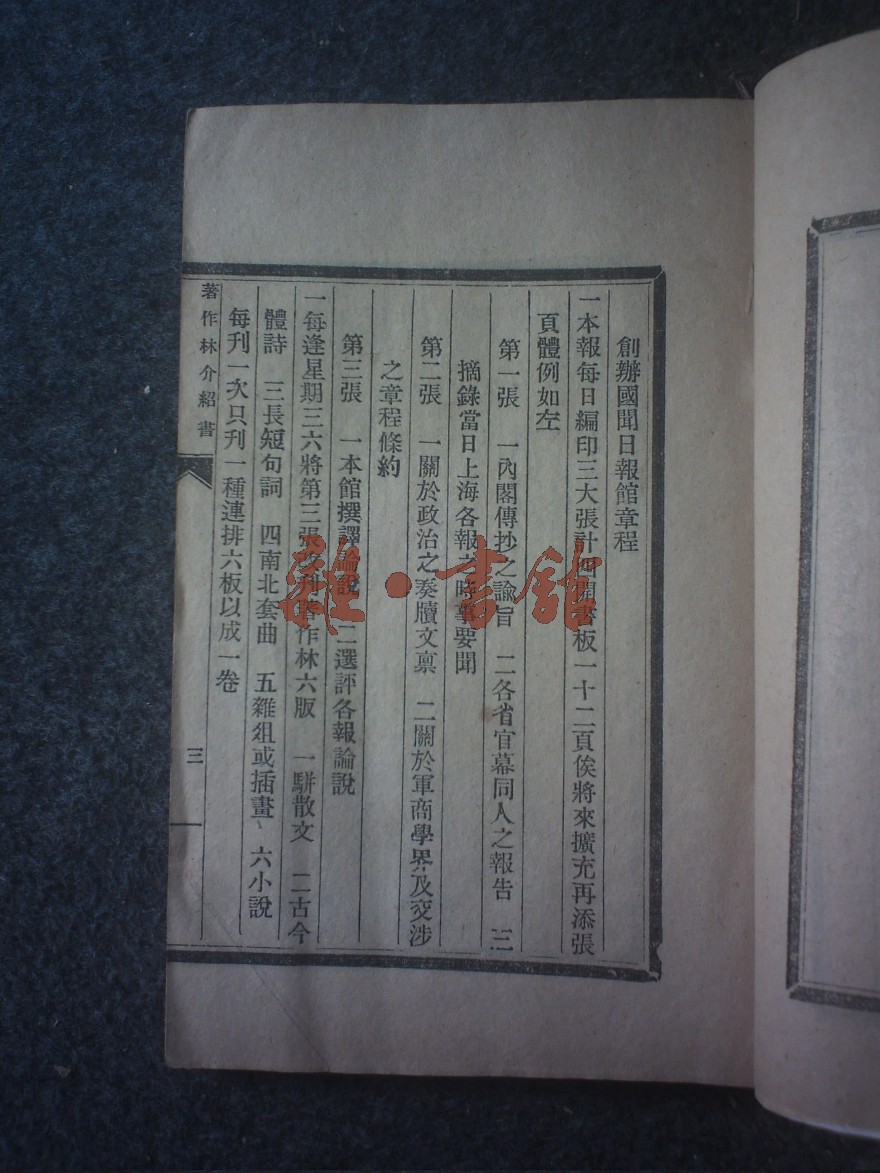 創辦國聞日報館章程
一本報每日編印三大張計四開書板一十二頁俟將來擴充再添張
頁體例如左
第一張　一內閣傳抄之諭旨　二各省官幕同人之報告　三
摘錄當日上海各報之時事要聞
第二張　一關於政治之奏牘文稟　二關於軍商學界及交涉
之章程條約
第三張　一本館撰譯論說　二選評各報論說
一每逢星期三六將第三張改刊著作林六版　一駢散文　二古今
體詩　三長短句詞　四南北套曲　五雜俎或插畫　六小說
每刊一次只刊一種連排六板以成一卷
著作林介紹書
三
雜·書館